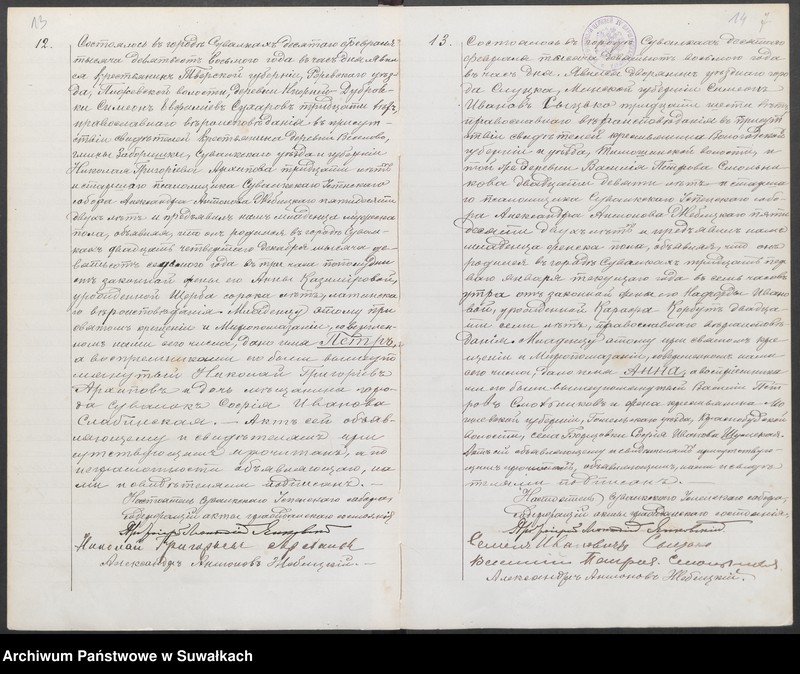 13
12.
Состоялось въ городѣ Сувалкахъ десятаго февраля
тысяча девятьсотъ восьмого года въ часъ дня. Явил-
ся крестьянинъ Тверской губерніи, уѣз-
да, волости, деревни Дубров-
ки Симеонъ Сухаровъ тридцати лѣтъ,
православнаго вѣроисповѣданія въ присут-
ствіи свидѣтелей крестьянина деревни
гмины Заборишки, Сувалкскаго уѣзда и губерніи
Николая Григорьева Архипова тридцати лѣтъ
и старшаго псаломщика Сувалкскаго Успенскаго
собора Александра Антонова Жебицкаго пятидесяти
двухъ лѣтъ и предъявилъ намъ младенца мужеска
пола, объявляя, что онъ родился въ городѣ Сувал-
кахъ двадцать четвертаго Декабря тысяча де-
вятьсотъ седьмого года въ три часа пополудни
отъ законной жены его Анны Казимировой,
урожденной Щерба сорока лѣтъ, латинска-
го вѣроисповѣданія. Младенцу этому при
святомъ крещеніи и Миропомазаніи, совершен-
номъ нами сего числа, дано имя Петръ,
а воспріемниками его были вышеупо-
мянутый Николай Григорьевъ
Архиповъ и дочь мѣщанина горо-
да Сувалокъ Софія Иванова
Слабинская. Актъ сей объяв-
ляющему и свидѣтелямъ при-
сутствующимъ прочитанъ, а по
неграмотности объявляющаго, на-
ми и свидѣтелями подписанъ.
Настоятель Сувалкскаго Успенскаго собора,
содержащій акты гражданскаго состоянія,
Николай Григорьевъ Архиповъ
Александръ Антоновъ Жебицкій.
14
13.
Состоялось въ городѣ Сувалкахъ десятаго
февраля тысяча девятьсотъ восьмого года
въ часъ дня. Явился дворянинъ уѣзднаго горо-
да Слуцка, Минской губерніи Симеонъ
Ивановъ тридцати шести лѣтъ
православнаго вѣроисповѣданія въ присут-
ствіи свидѣтелей крестьянина Вологодской
губерніи и уѣзда, волости, и
той же деревни Василія Петрова Смольни-
кова двадцати девяти лѣтъ и старша-
го псаломщика Сувалкскаго Успенскаго собо-
ра Александра Антонова Жебицкаго пяти-
десяти двухъ лѣтъ и предъявилъ намъ
младенца женска пола, объявляя, что онъ
родился въ городѣ Сувалкахъ тридцать пер-
ваго января текущаго года въ семь часовъ
утра отъ законной жены его Надежды Ивано-
вой, урожденной Карафа Корбутъ двадца-
ти семи лѣтъ, православнаго вѣроисповѣ-
данія. Младенцу этому при святомъ кре-
щеніи и Миропомазаніи, совершенномъ нами
сего числа, дано имя Анна, а воспріемника-
ми его были вышеупомянутый Василій Пет-
ровъ Смольниковъ и жена крестьянина Мо-
гилевской губерніи, Гомельскаго уѣзда,
волости, села Софія Иванова Шумская.
Актъ сей объявляющему и свидѣтелямъ присутствую-
щимъ прочитанъ, объявляющимъ, нами и свидѣ-
телями подписанъ.
Настоятель Сувалкскаго Успенскаго собора,
содержащій акты гражданскаго состоянія,
Семенъ Ивановичъ
Василій Петровъ Смольниковъ
Александръ Антоновъ Жебицкій.
Archiwum Państwowe w Suwałkach